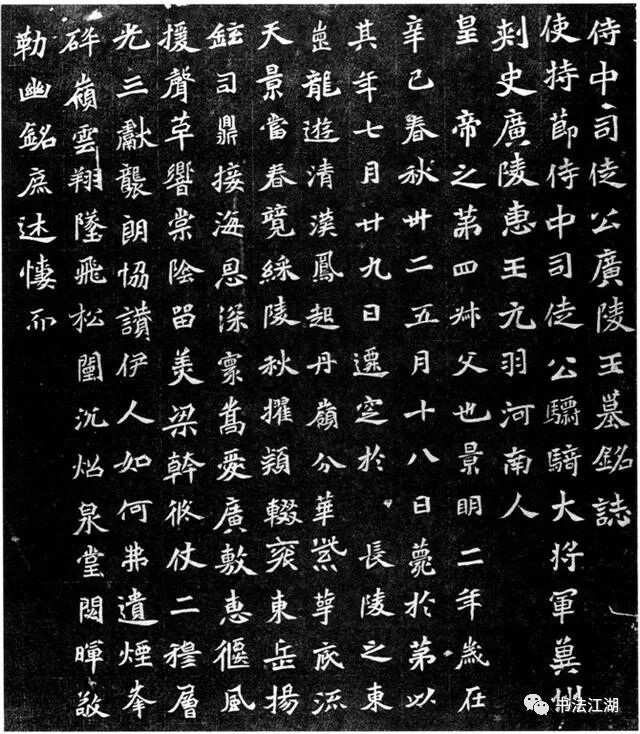 侍中司徒公廣陵王墓銘誌
使持節侍中司徒公驃騎大將軍冀州
刾史廣陵惠王元羽河南人
皇帝之第四叔父也景明二年歲在
辛巳春秋卅二五月十八日薨於第以
其年七月廿九日遷窆於長陵之東
崗龍遊清漢鳳起丹嶺分華紫萼底流
天景當春競綵陵秋擢穎輟袞東岳揚
鉉司鼎接海恩深寰嵩愛廣敷惠偃風
援聲草響棠陰留美梁幹攸仗二穆層
光三獻襲朗協讚伊人如何弗遺煙峯
碎嶺雲翔墜飛松闈沉炤泉堂閟暉敬
勒幽銘庶述悽而
书法江湖